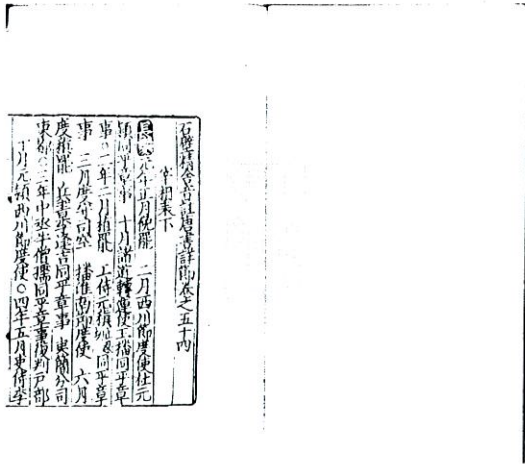 石壁精舍音註唐書詳節卷之五十四
宰相表下
長慶元年正月俛罷 二月西川節度使杜元
穎同平章事 十月諸道轉運使王播同平章
事〇二年二月植罷 工侍元稹 同平章
事 三月度守司空 播淮南節度使 六月
度稹罷 兵尚李逢吉同平章事 東簡分司
東都〇三年中丞牛僧孺同平章事復判戶部
十月元穎西川節度使〇四年五月吏侍李